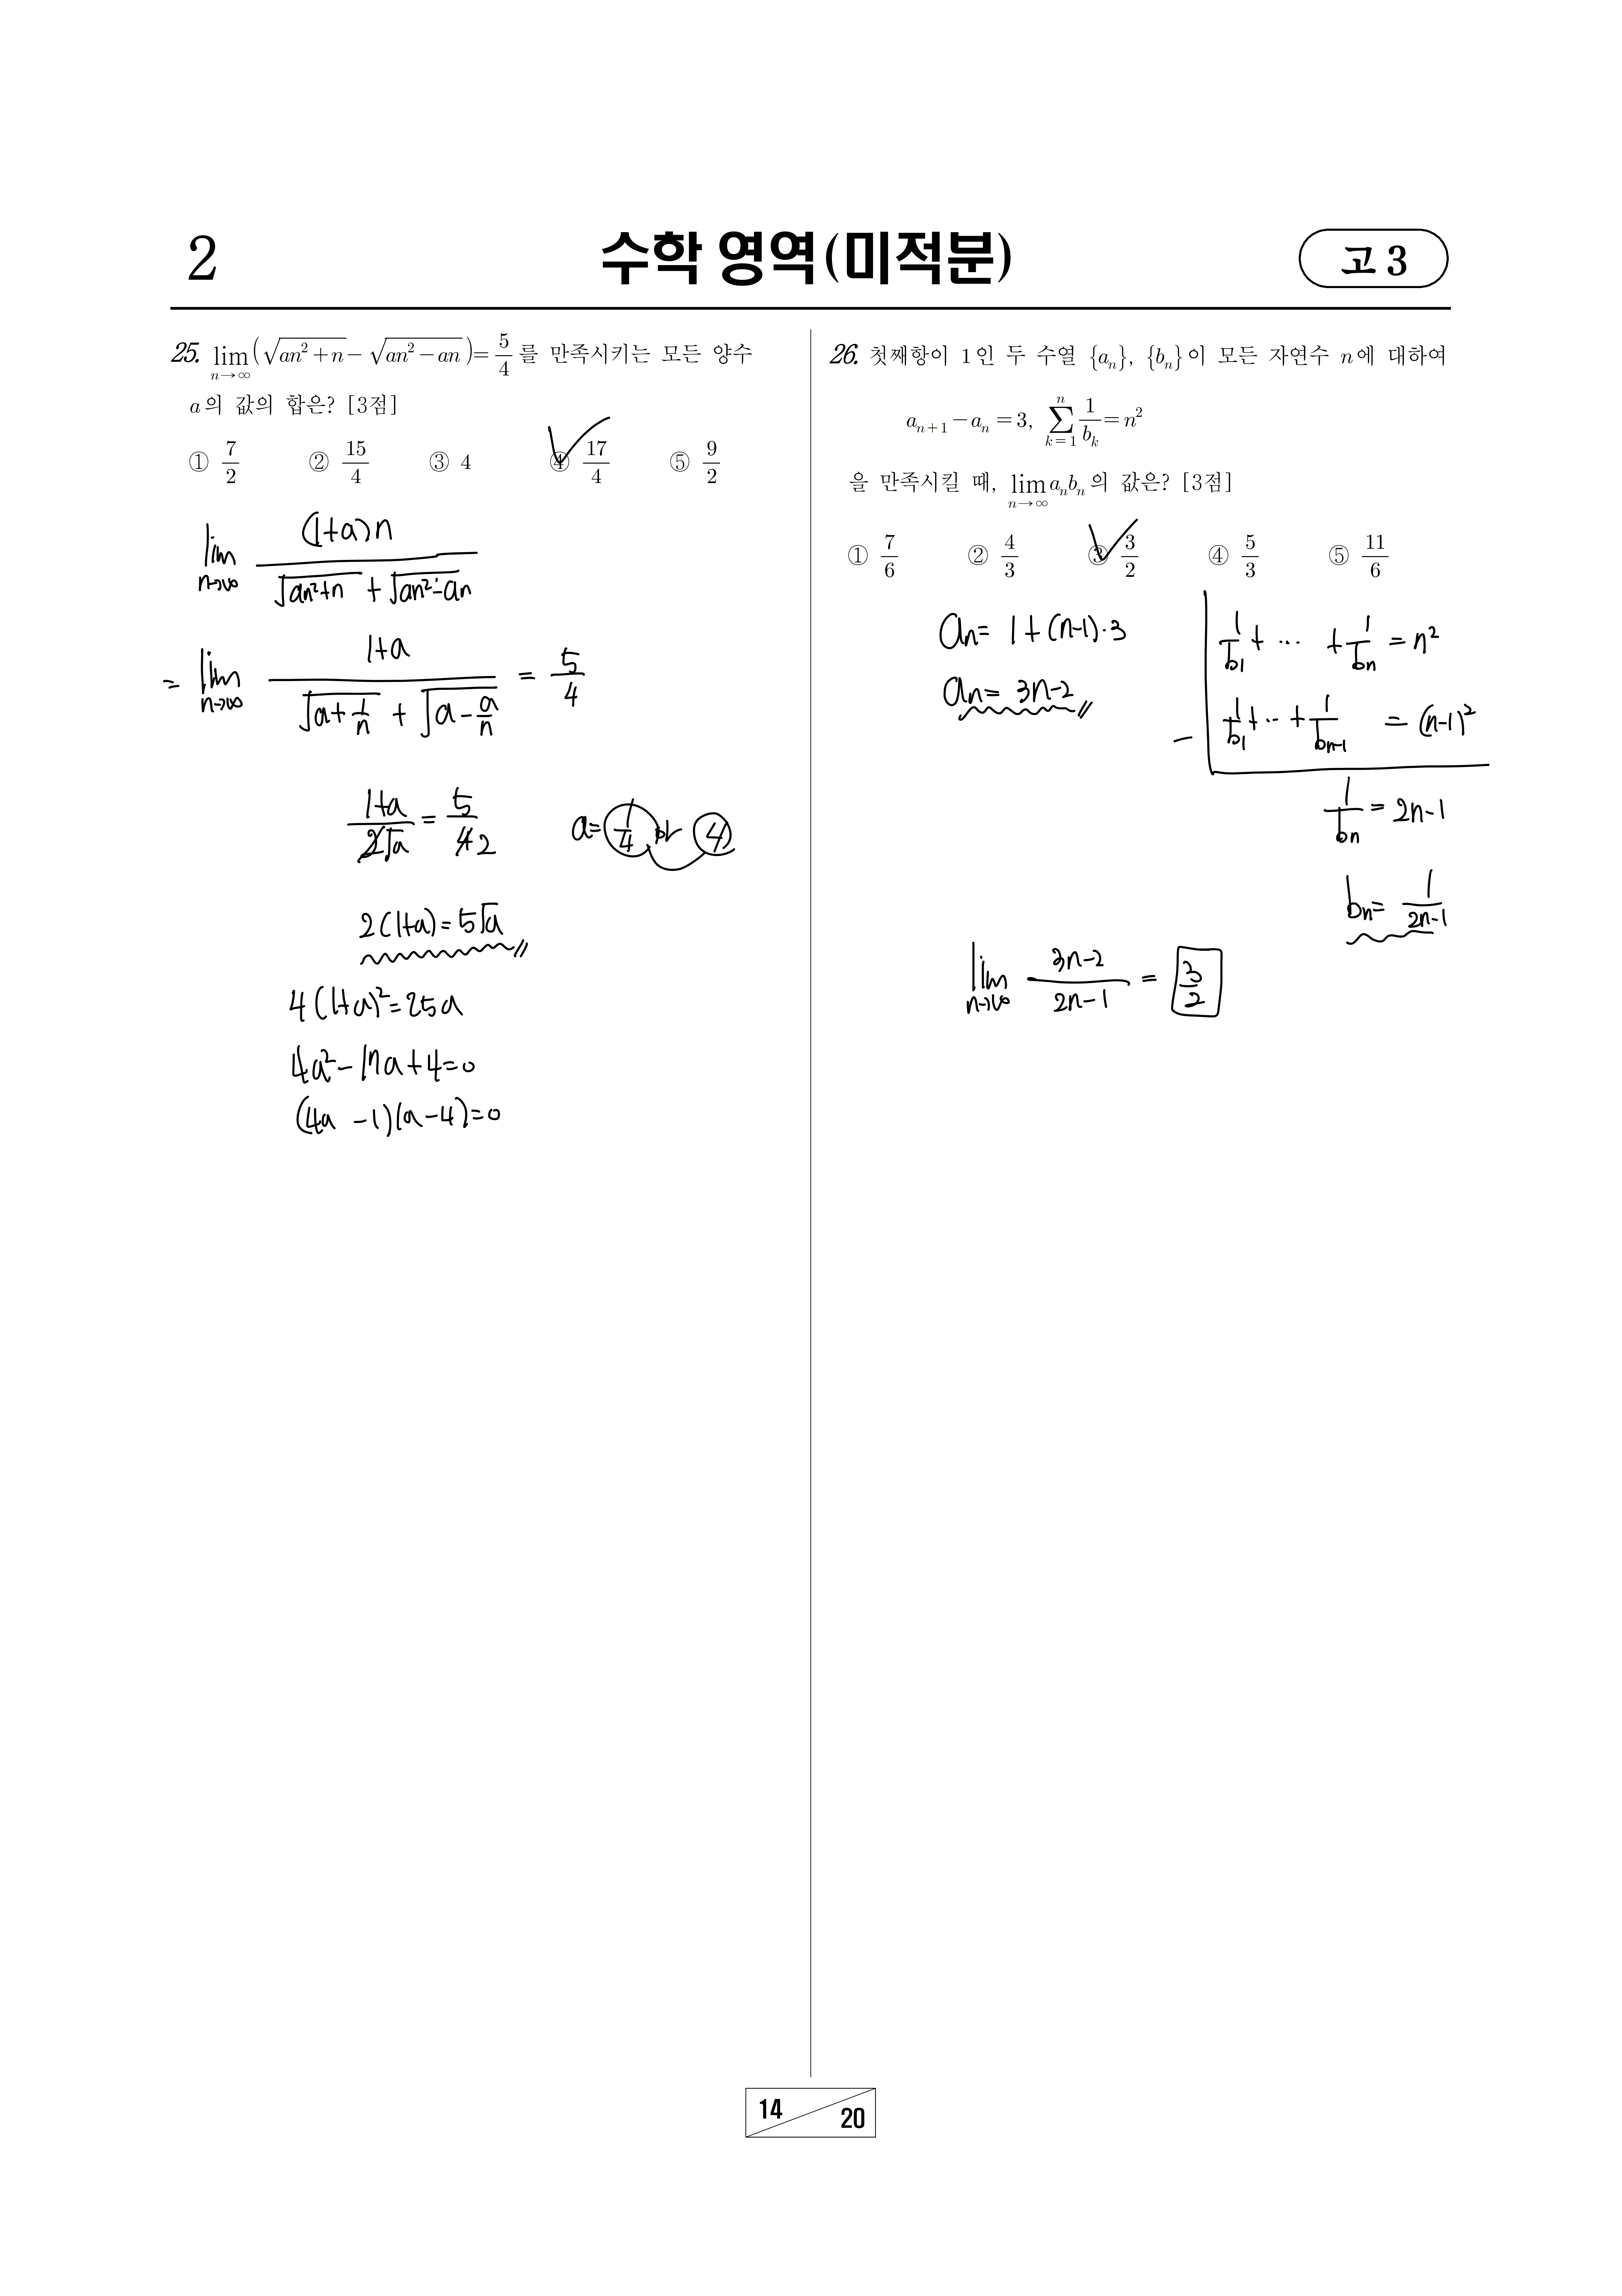 2
수학 영역(미적분)
고 3
25. lim_{n→∞}(√(an²+n) − √(an²−an)) = 5/4 를 만족시키는 모든 양수
a의 값의 합은? [3점]
① 7/2 ② 15/4 ③ 4 ④ 17/4 ⑤ 9/2
lim_{n→∞} (1+a)n / (√(an²+n) + √(an²-an))
= lim_{n→∞} (1+a) / (√(a+1/n) + √(a-a/n)) = 5/4
(1+a)/(2√a) = 5/4 2
a= 1/4 or 4
2(1+a)=5√a
4(1+a)²=25a
4a²-17a+4=0
(4a-1)(a-4)=0
26. 첫째항이 1인 두 수열 {a_n}, {b_n}이 모든 자연수 n에 대하여
a_{n+1} − a_n = 3, ∑_{k=1}^{n} 1/b_k = n²
을 만족시킬 때, lim_{n→∞} a_n b_n의 값은? [3점]
① 7/6 ② 4/3 ③ 3/2 ④ 5/3 ⑤ 11/6
a_n= 1+(n-1)·3
a_n= 3n-2
1/b_1 + ··· + 1/b_n = n²
- 1/b_1 + ·· + 1/b_{n-1} = (n-1)²
1/b_n = 2n-1
b_n= 1/(2n-1)
lim_{n→∞} (3n-2)/(2n-1) = 3/2
14
20